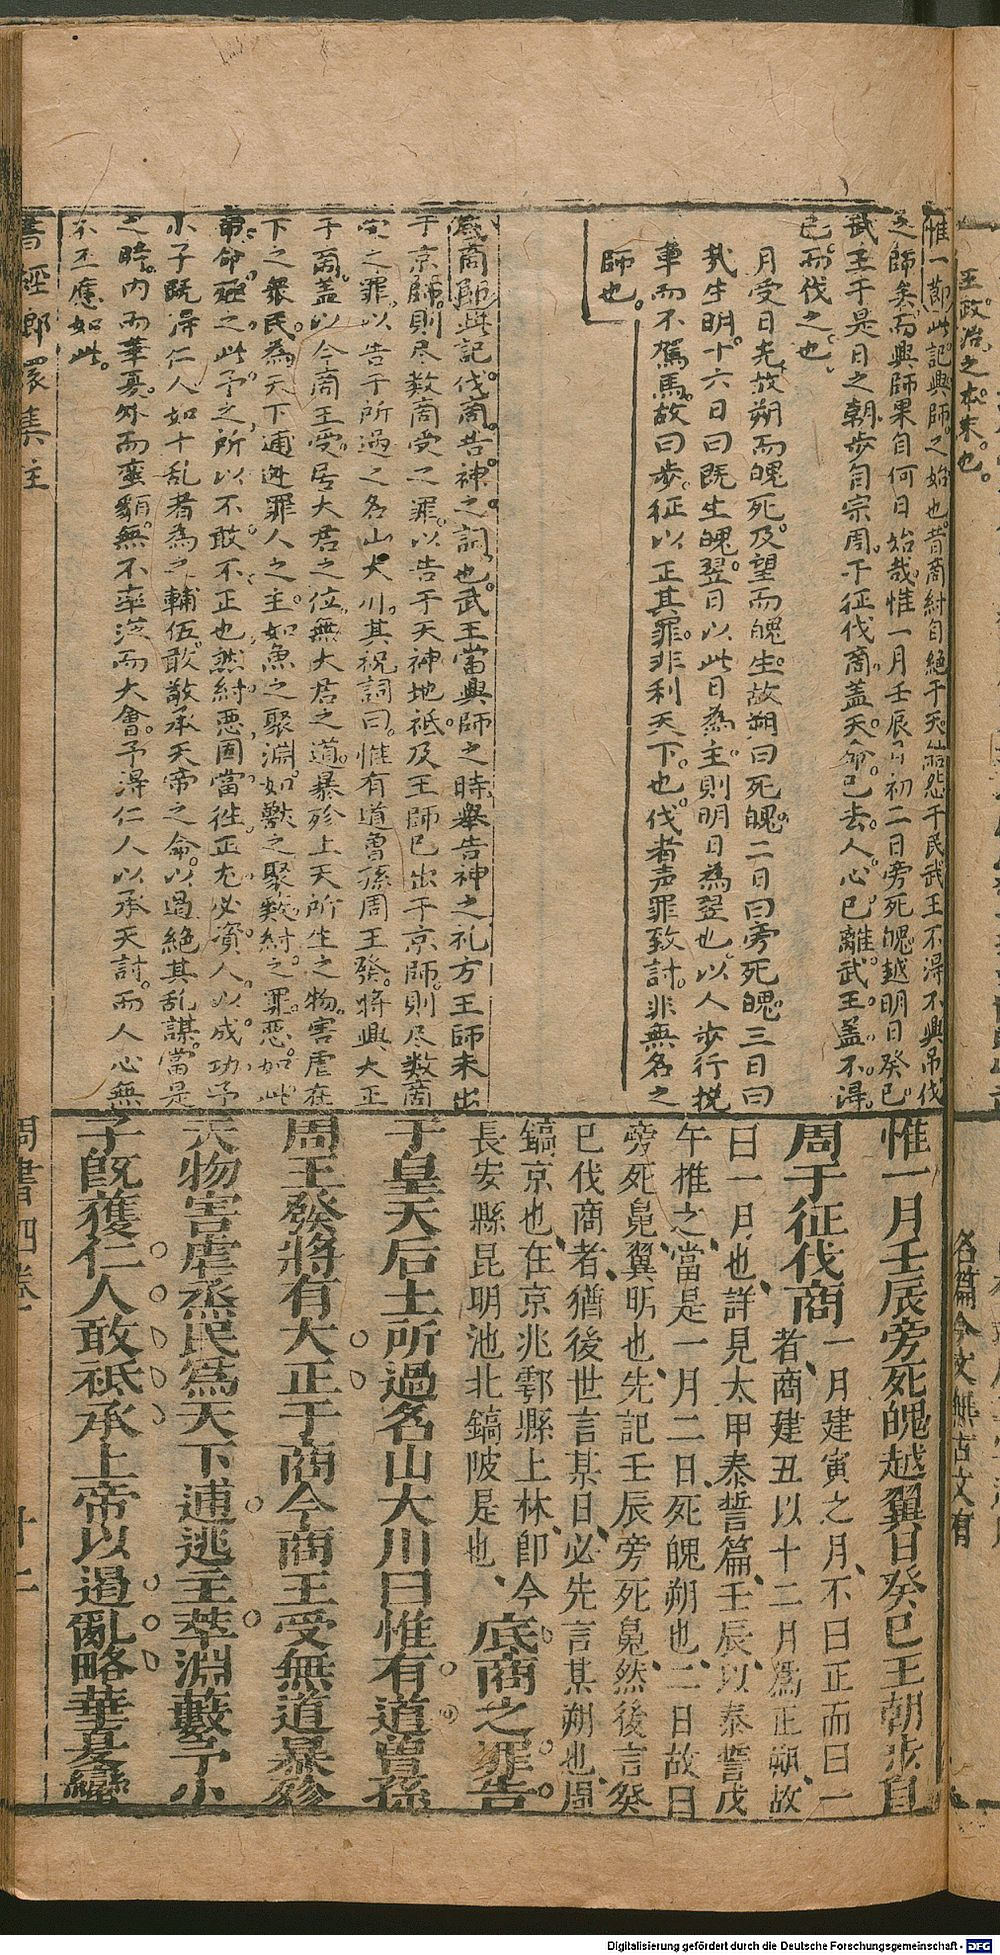 王政治之本末也
各篇今文無古文有
惟一節此記興師之始也昔商紂自絕于天結怨于民武王不得不興吊伐
之師矣而興師果自何日始哉惟一月壬辰乃初二日旁死魄越明日癸巳
武王于是日之朝步自宗周于征伐商蓋天命已去人心已離武王盖不得
已而伐之也
月受日光故朔而魄死及望而魄生故朔曰死魄二日曰旁死魄三日曰
哉生明十六日曰既生魄翌日以此日為主則明日為翌也以人步行挽
車而不駕馬故曰步征以正其罪非利天下也伐者声罪致討非無名之
師也
底商節此記伐商告神之詞也武王當興師之時舉告神之礼方王師未出
于京師則尽数商受之罪以告于天神地祇及王師已出于京師則尽数商
受之罪以告于所過之名山大川其祝詞曰惟有道曾孫周王發將興大正
于商蓋以今商王受居大君之位無大君之道暴殄上天所生之物害虐在
下之衆民為天下逋逃罪人之主如魚之聚淵如獸之聚藪紂之罪惡如此
帝命殛之此予之所以不敢不正也然紂惡固當徃正尤必資人以成功予
小子既淂仁人如十乱者為之輔伍敢敬承天帝之命以遏絕其乱謀當是
之時内而華夏外而蛮貊無不率從而大會予淂仁人以承天討而人心無
不丕應如此
惟一月壬辰旁死魄越翼日癸巳王朝步自
周于征伐商一月建寅之月不曰正而曰一
者商建丑以十二月爲正朔故
曰一月也詳見太甲泰誓篇壬辰以泰誓戊
午推之當是一月二日死魄朔也二日故曰
旁死魄翼明也先記壬辰旁死魄然後言癸
巳伐商者猶後世言某日必先言某朔也周
鎬京也在京兆鄠縣上林即今
長安縣昆明池北鎬陂是也底商之罪告
于皇天后土所過名山大川曰惟有道曾孫
周王發將有大正于商今商王受無道暴殄
天物害虐烝民爲天下逋逃主萃淵藪予小
子既獲仁人敢祗承上帝以遏亂略華夏蠻
書經郎嬛集註
周書四卷
十二
Digitalisierung gefördert durch die Deutsche Forschungsgemeinschaft - DFG